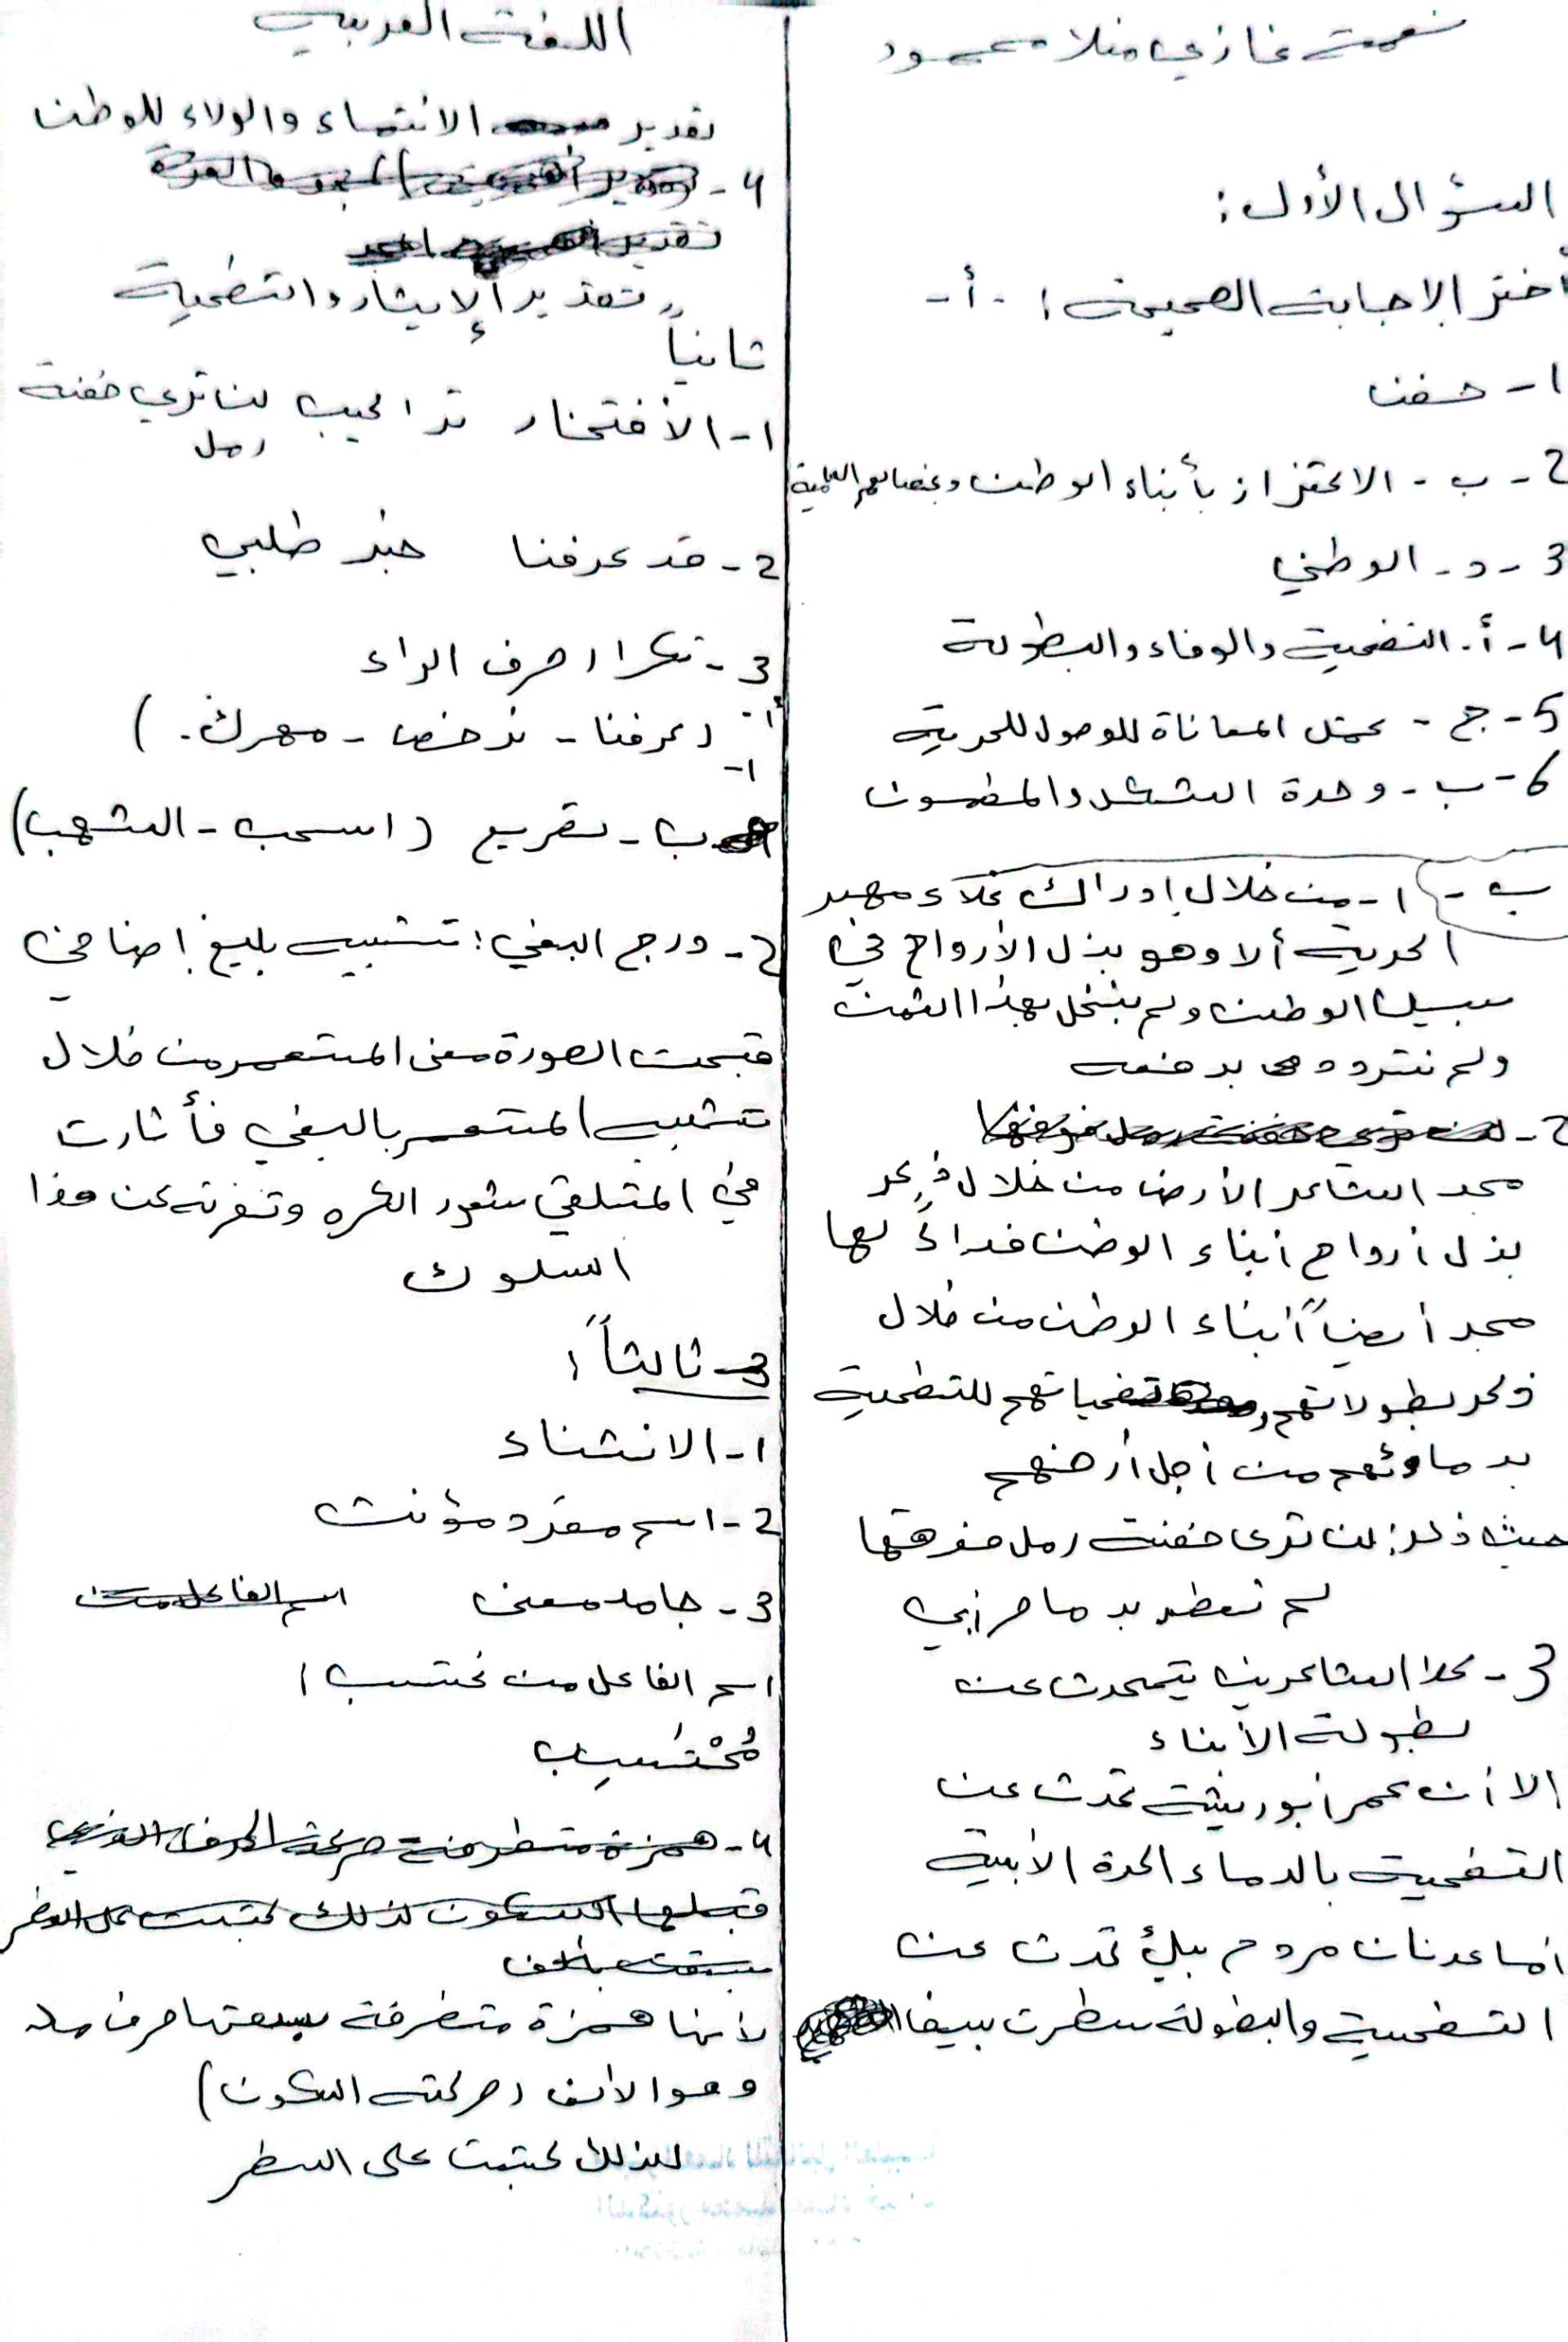 نعمت غازي منلا محمود
السؤال الأول:
أختر الإجابة الصحيحة: -أ-
1- حفن
2- ب - الاعتزاز بأبناء الوطن و العلمية
3- د- الوطني
4- أ- التضحية والوفاء والبطولة
5- ج - تحمل المعاناة للوصول للحرية
6- ب - وحدة الشكل والمضمون
ب - 1- من خلال إدراك غلاء مهر
الحرية ألا وهو بذل الأرواح في
سبيل الوطن ولم نبخل بهذا الثمن
ولم نتردد بدفعه
2-
مجد الشاعر الأرض من خلال ذكر
بذل أرواح أبناء الوطن فداءً لها
مجد أيضاً أبناء الوطن من خلال
ذكر بطولاتهم للتضحية
بدمائهم من أجل أرضهم
حيث ذكر: لن تري حفنة رمل فوقها
لم تعطر بدما حر أبي
3- كلا الشاعرين يتحدث عن
بطولة الأبناء
الا أن عمر أبو ريشة تحدث عن
التضحية بالدماء الحرة الأبية
أما عدنان مردم بيك تحدث عن
التضحية والبطولة سطرت
اللغة العربية
تقدير الانتماء والولاء للوطن
4-
تقدير الإيثار والتضحية
ثانياً
1- الأفتخار تراكيب لن تري حفنة
رمل
2- قد عرفنا خبر طلبي
3- تكرار حرف الراء
أ- (عرفنا - نرخص - مهرك. )
ب- تصريع (السحب - الشهب)
2- درج البغي: تشبيه بليغ إضافي
قبحت الصورة معنى المستعمر من خلال
تشبيه المستعمر بالبغي فأثارت
في المتلقي شعور الكره وتنفرته عن هذا
السلوك
3- ثالثاً:
1- الانشناء
2- اسم مفرد مؤنث
3- جامد معنى اسم الفاعل من
اسم الفاعل من تحتسب:
مُحْتسِب
4- همزة متطرفة حركة الحرف الذي
قبلها السكون لذلك كتبت على السطر
سبقت بألف
لأنها همزة متطرفة سبقها حرف مد
وهو الألف (حركته السكون)
لذلك كتبت على السطر